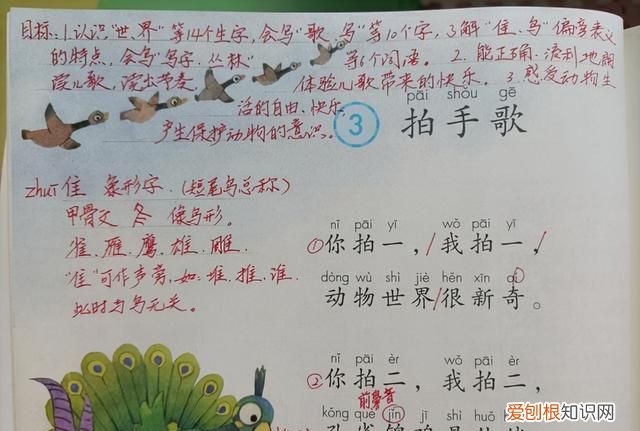 目标：1.认识"世、界"等14个生字，会写"歌、写"等10个字，了解"隹、鸟"偏旁表义
的特点，会写"写字、丛林"等6个词语。2.能正确、流利地朗
读儿歌，读出节奏，体验儿歌带来的快乐。3.感受动物生
活的自由、快乐，
产生保护动物的意识。
pāi shǒu gē
3 拍手歌
zhuī 隹 象形字.(短尾鸟总称)
甲骨文 像鸟形。
雀、雁、鹰、雄、雕
"隹"可作声旁，如：堆、推、谁.
此时与鸟无关。
nǐ pāi yī wǒ pāi yī
①你拍一，/我拍一，/
dòng wù shì jiè hěn xīn qí
动物世界/很新奇。
nǐ pāi èr wǒ pāi èr
②你拍二，我拍二，
前鼻音
kǒng què jǐn jī shì huǒ
爱刨根知识网